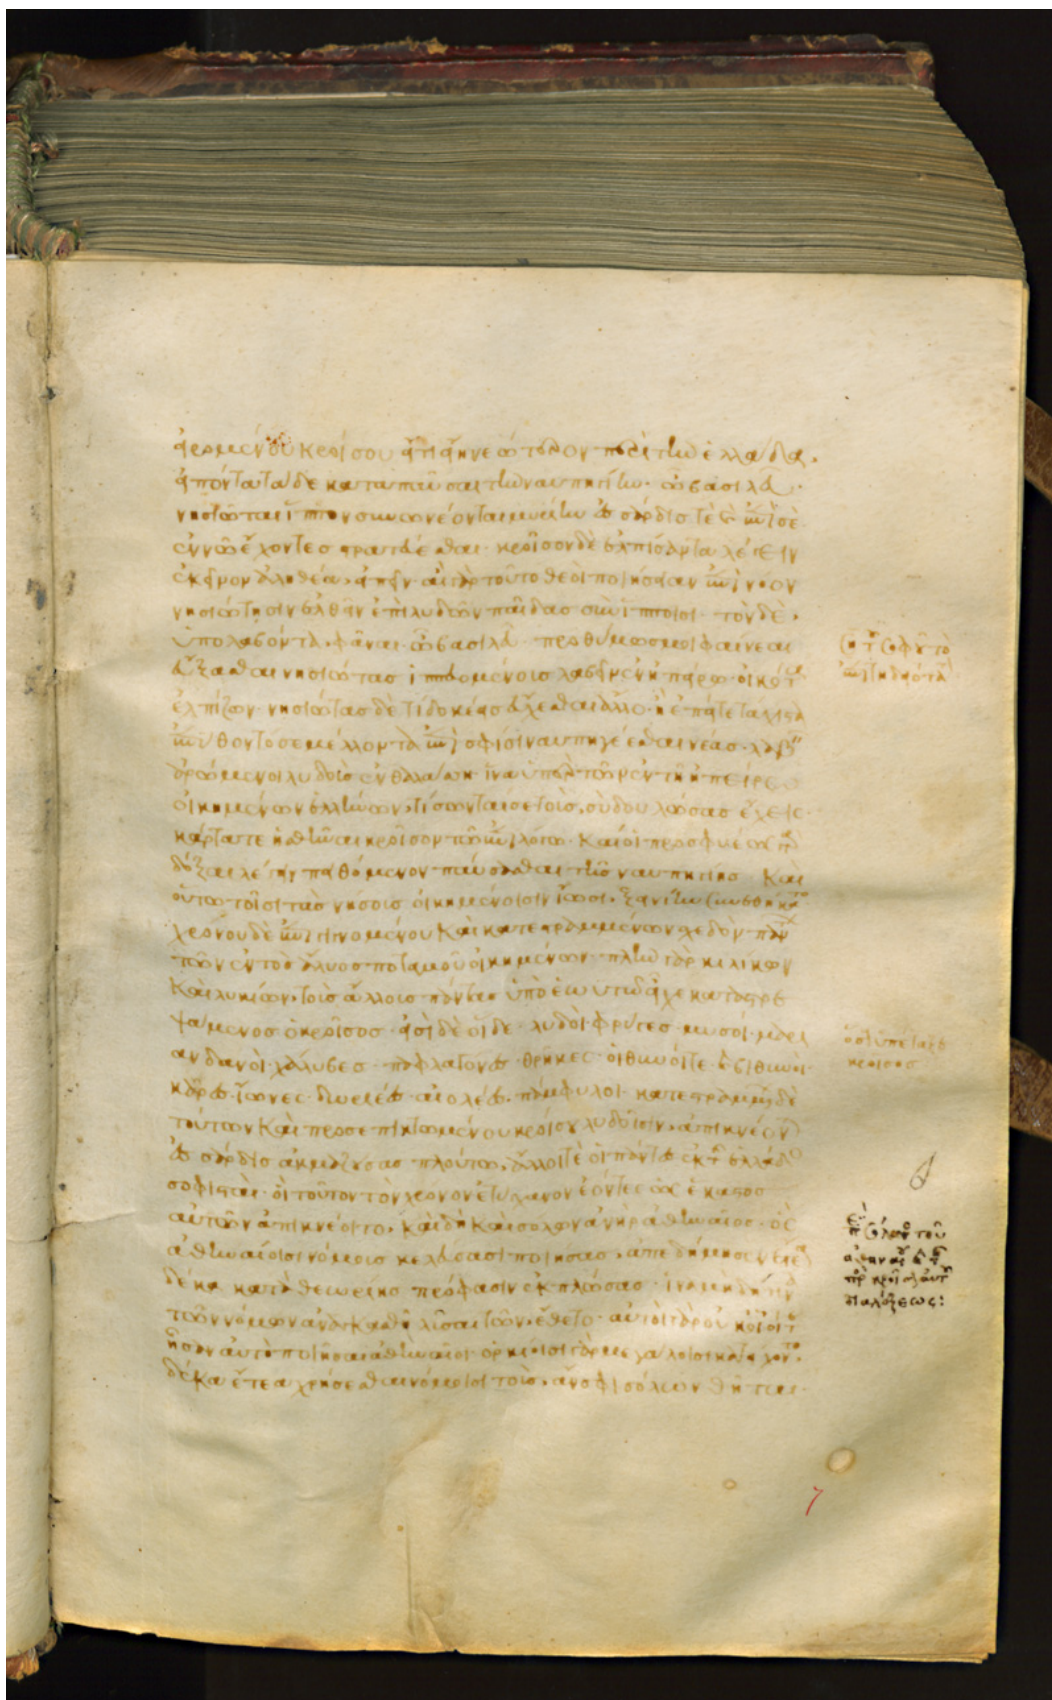 εἰρομένου κροίσου εἴ τι εἴη νεώτερον περὶ τὴν ἑλλάδα.
εἰπόντα τάδε καταπαῦσαι τὴν ναυπηγίην. ὦ βασιλεῦ.
νησιῶται ἵππον συνωνέονται μυρίην ἐς σάρδις τὲ καὶ ἐπὶ σὲ
ἐν νῶ ἔχοντες στρατεύεσθαι. κροῖσον δὲ ἐλπίσαντα λέγειν
ἐκεῖνον ἀληθέα, εἰπεῖν. αἲ γὰρ τοῦτο θεοὶ ποιήσειαν ἐπὶ νόον
νησιώτησιν ἐλθεῖν ἐπὶ λυδῶν παῖδας σὺν ἵπποισι. τὸν δὲ,
ὑπολαβόντα, φάναι. ὦ βασιλεῦ. προθύμως μοι φαίνεαι
εὔξασθαι νησιώτας ἱππευομένους λαβεῖν ἐν ἠπείρω. οἰκότα
ἐλπίζων. νησιώτας δὲ τί δοκέεις εὔχεσθαι ἄλλο. ἢ ἐπείτε τάχιστα
ἐπύθοντό σε μέλλοντα ἐπὶ σφίσιν ναυπηγέεσθαι νέας. λαβεῖν
ἀρώμενοι λυδοὺς ἐν θαλάσση. ἵνα ὑπὲρ τῶν ἐν τῆ ἠπείρω
οἰκημένων ἑλλήνων, τίσωνταί σε τοὺς, σὺ δουλώσας ἔχεις.
κάρτα τε ἡσθῆναι κροῖσον τῶ ἐπιλόγω. καί οἱ προσφυέως γὰρ
δόξαι λέγειν πειθόμενον παύσασθαι τῆς ναυπηγίης. καὶ
οὕτω τοῖσι τὰς νήσους οἰκημένοισιν ἴωσι, ξεινίην συνεθήκατο
χρόνου δὲ ἐπιγινομένου καὶ κατεστραμμένων σχεδὸν πάντων
τῶν ἐντὸς ἅλυος ποταμοῦ οἰκημένων. πλὴν γὰρ κιλίκων
καὶ λυκίων, τοὺς ἄλλους πάντας ὑπὸ ἑωυτῶ εἶχε καταστρε
ψάμενος ὁ κροῖσος. εἰσὶ δὲ οἵδε. λυδοὶ. φρύγες. μυσοί. μαρι
ανδυνοὶ. χάλυβες. παφλαγόνες. θρήικες. οἱ θυνοί τε. καὶ βιθυνοί.
κᾶρες. ἴωνες. δωριέες. αἰολέες. πάμφυλοι. κατεστραμμένων δὲ
τούτων καὶ προσεπικτωμένου κροίσου λυδοῖσιν, ἀπικνέονται
ἐς σάρδις ἀκμαζούσας πλούτω, ἄλλοι τὲ οἱ πάντες ἐκ τῆς ἑλλάδος
σοφισταὶ. οἳ τοῦτον τὸν χρόνον ἐτύγχανον ἐόντες ὡς ἕκαστος
αὐτῶν ἀπικνέοιτο, καὶ δὴ καὶ σόλων ἀνὴρ ἀθηναῖος. ὃς
ἀθηναίοισι νόμους κελεύσασι ποιήσας, ἀπεδήμησεν ἔτεα
δέκα κατὰ θεωρίης πρόφασιν ἐκπλώσας. ἵνα μὴ δή τινα
τῶν νόμων ἀναγκασθῆ λῦσαι τῶν, ἔθετο. αὐτοὶ γὰρ οὐχ οἷοί τε
ἦσαν αὐτὸ ποιῆσαι ἀθηναῖοι. ὁρκίοισι γὰρ μεγάλοισι κατείχοντο.
δέκα ἔτεα χρήσεσθαι νόμοισι τοὺς, ἄν σφι σόλων θῆται.
ὅσων ὑπῆρχε
κροῖσος
περὶ σόλωνος τοῦ
ἀθηναίου καὶ τῆς
πρὸς κροῖσον αὐτοῦ
διαλέξεως:
7